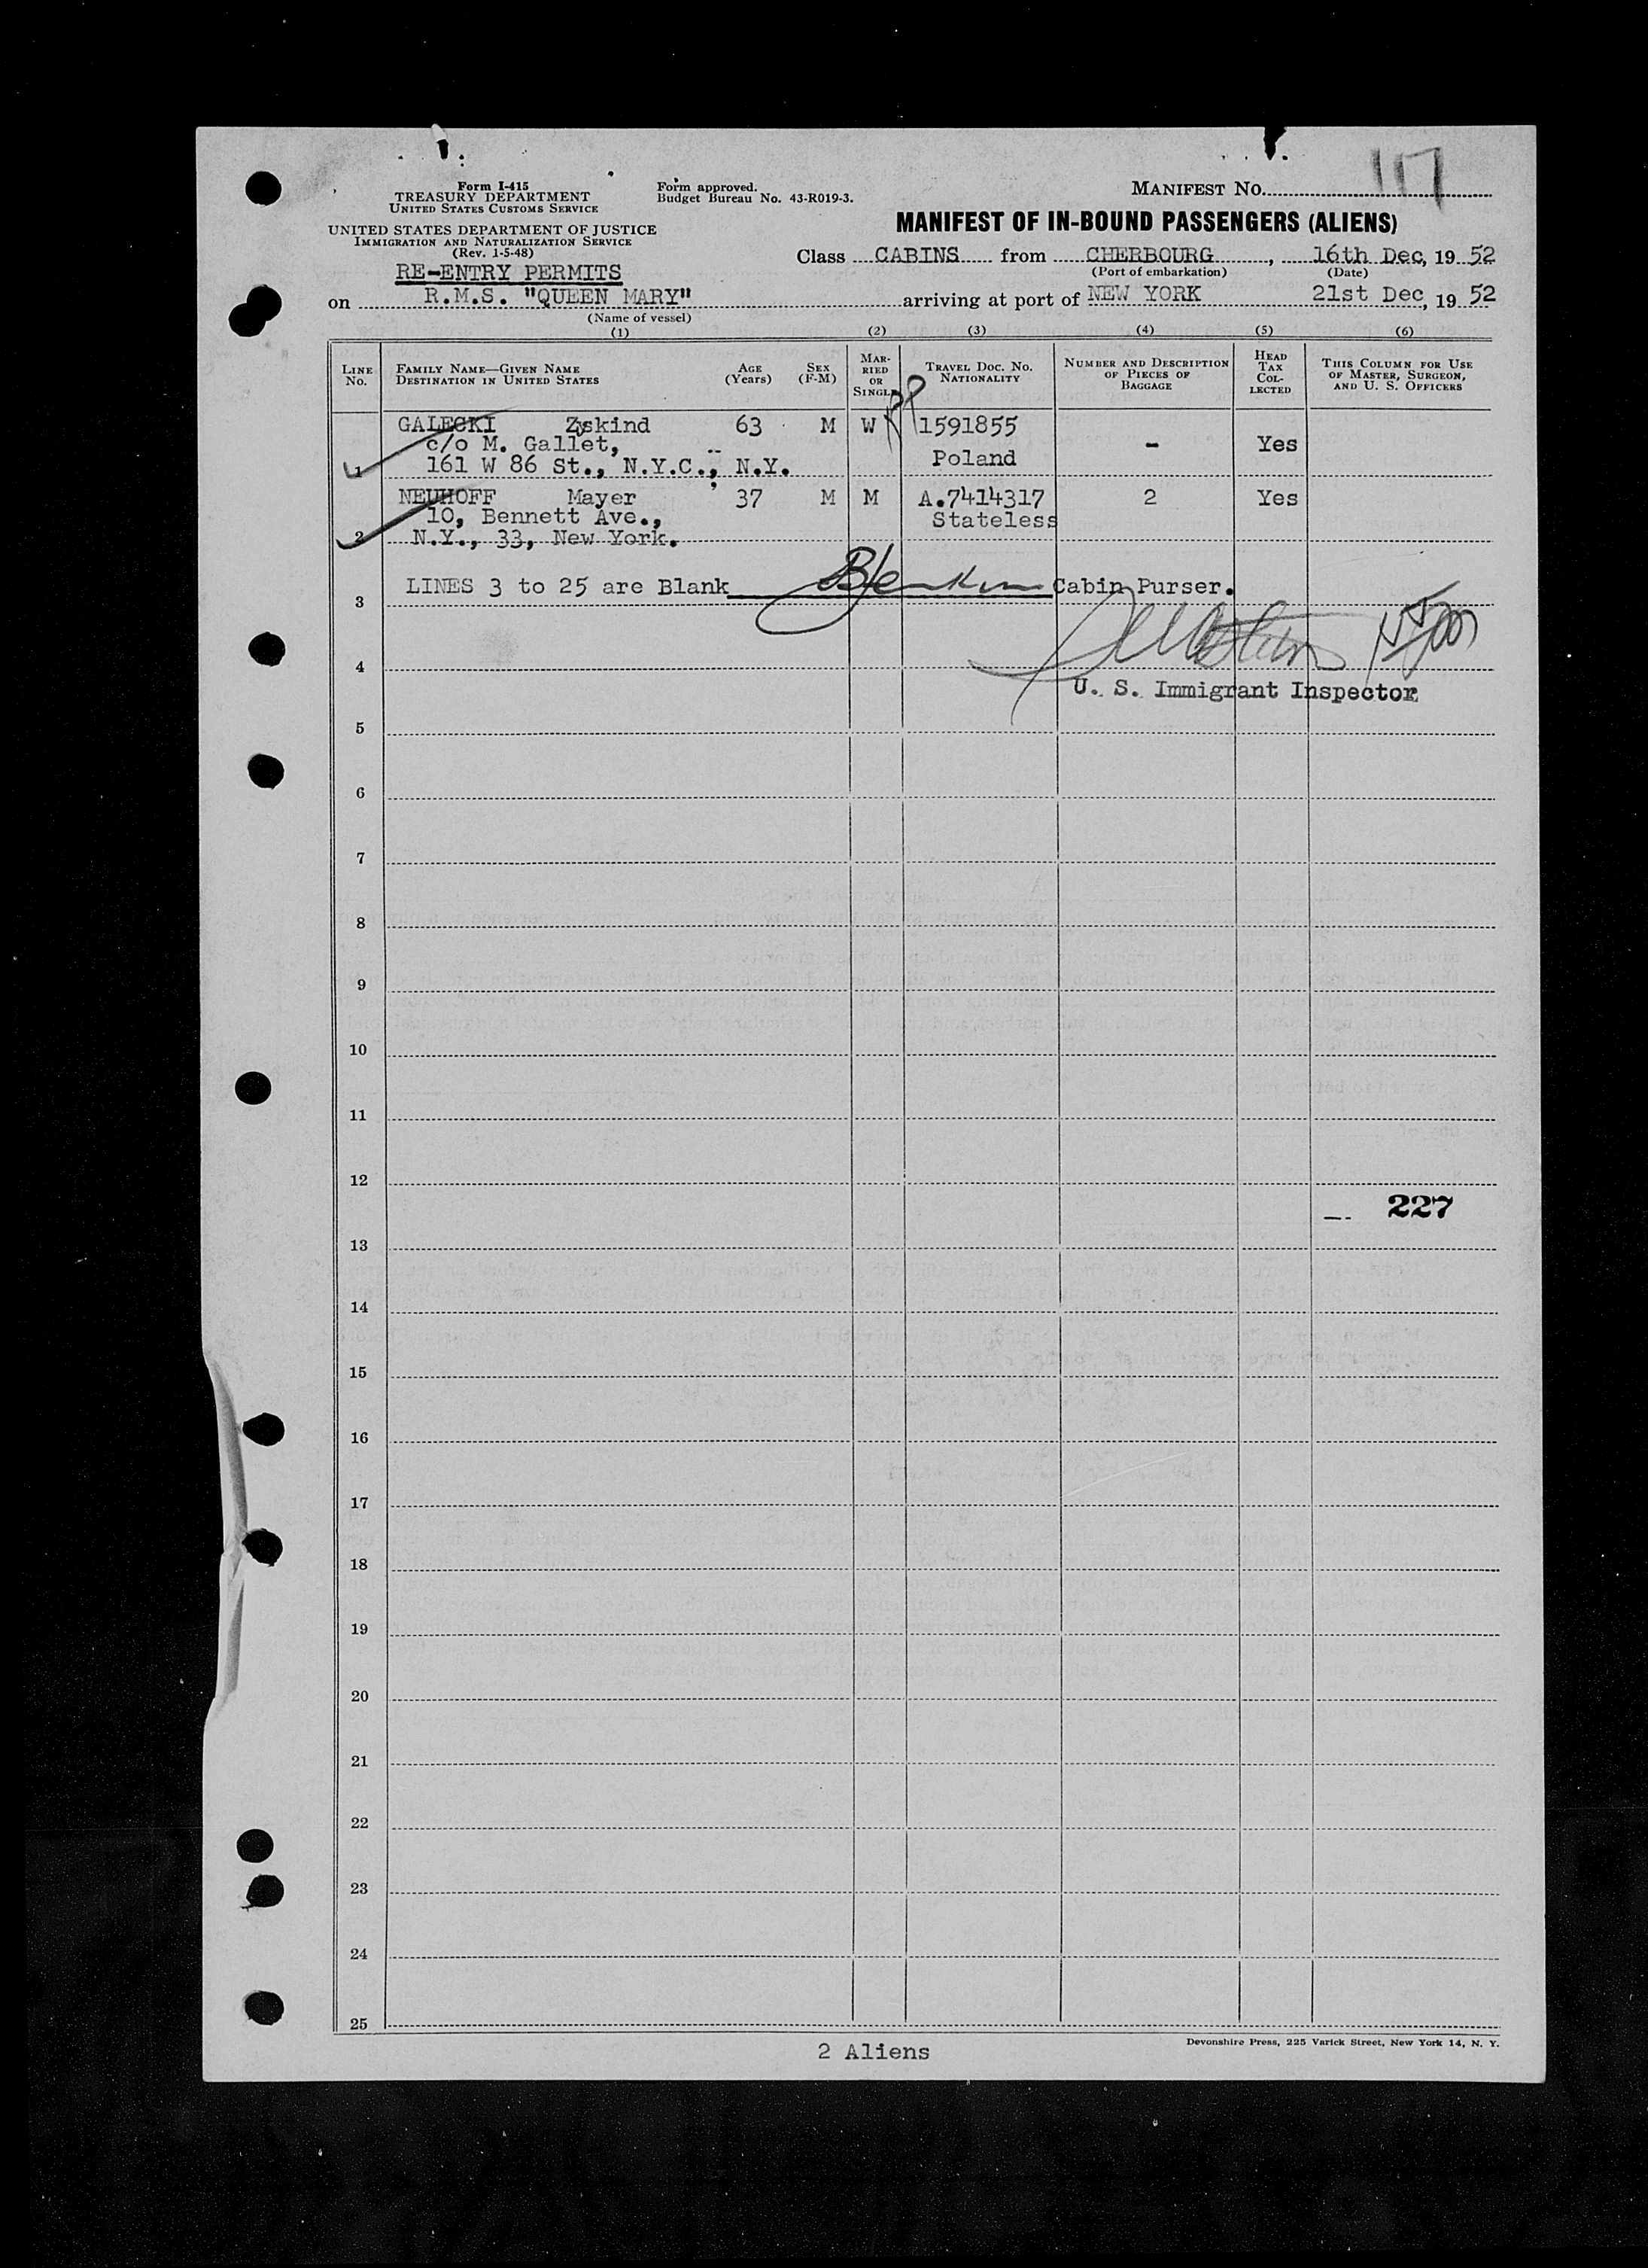 117
Form I-415
TREASURY DEPARTMENT
UNITED STATES CUSTOMS SERVICE
Form approved.
Budget Bureau No. 43-R019-3.
MANIFEST NO.
UNITED STATES DEPARTMENT OF JUSTICE
IMMIGRATION AND NATURALIZATION SERVICE
(Rev. 1-5-48)
MANIFEST OF IN-BOUND PASSENGERS (ALIENS)
RE-ENTRY PERMITS
Class CABINS from CHERBOURG, 16th Dec, 19 52
(Port of embarkation) (Date)
on R.M.S. "QUEEN MARY" arriving at port of NEW YORK 21st Dec, 19 52
(Name of vessel)
(1) (2) (3) (4) (5) (6)
LINE NO.
FAMILY NAME—GIVEN NAME
DESTINATION IN UNITED STATES
AGE (Years)
SEX (F-M)
MARRIED OR SINGLE
TRAVEL DOC. NO.
NATIONALITY
NUMBER AND DESCRIPTION OF PIECES OF BAGGAGE
HEAD TAX COLLECTED
THIS COLUMN FOR USE OF MASTER, SURGEON, AND U. S. OFFICERS
GALECKI Zyskind 63 M W 1591855 - Yes
c/o M. Gallet, Poland
1 161 W 86 St., N.Y.C., N.Y.
NEUHOFF Mayer 37 M M A.7414317 2 Yes
10, Bennett Ave., Stateless
2 N.Y., 33, New York.
LINES 3 to 25 are Blank Cabin Purser.
3
4
U. S. Immigrant Inspector
5
6
7
8
9
10
11
12
227
13
14
15
16
17
18
19
20
21
22
23
24
25
2 Aliens
Devonshire Press, 225 Varick Street, New York 14, N. Y.